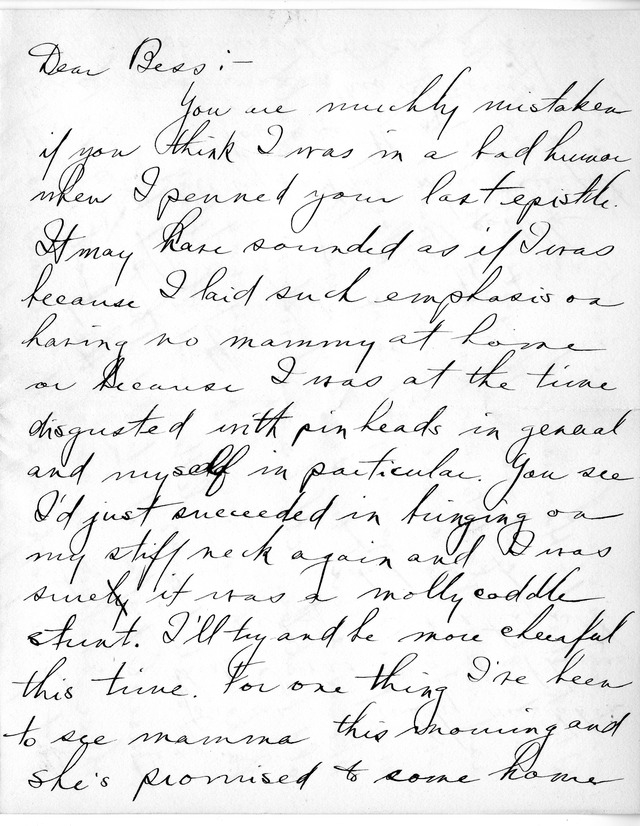 Dear Bess:-
You are muchly mistaken
if you think I was in a bad humor
when I penned your last epistle.
It may have sounded as if I was
because I laid such emphasis on
having no mammy at home
or because I was at the time
disgusted with pinheads in general
and myself in particular. You see
I'd just succeeded in bringing on
my stiff neck again and I was
sure it was a mollycoddle
stunt. I'll try and be more cheerful
this time. For one thing I've been
to see mamma this morning and
she's promised to come home